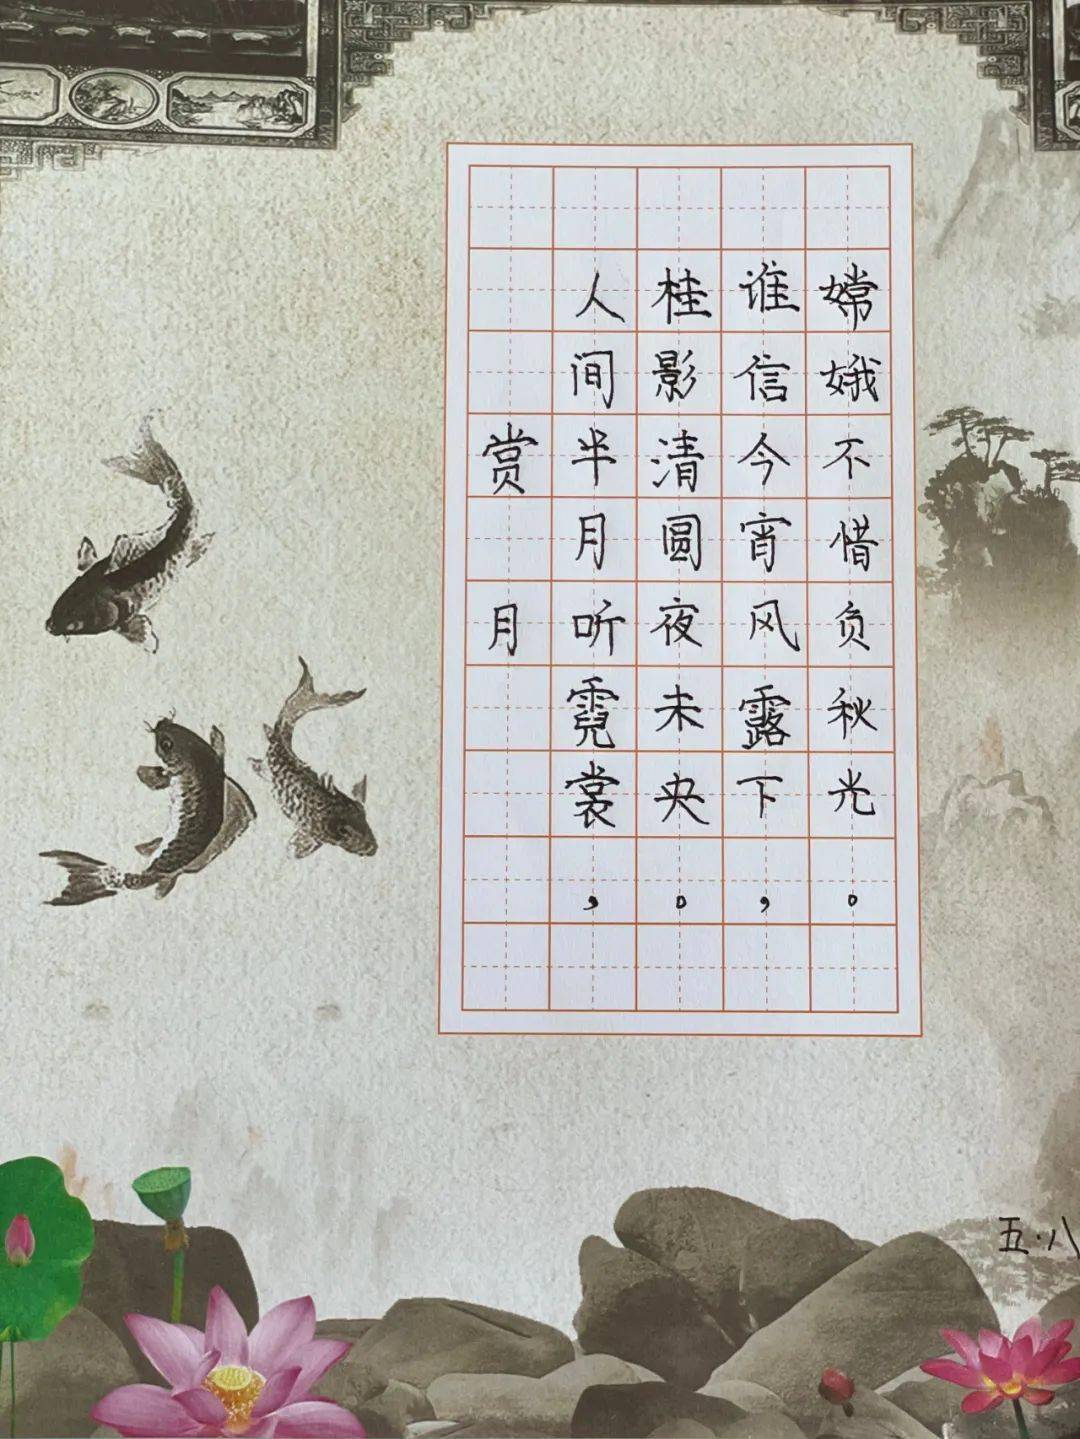 赏月
人间半月听霓裳，
桂影清圆夜未央。
谁信今宵风露下，
嫦娥不惜负秋光。
五·八